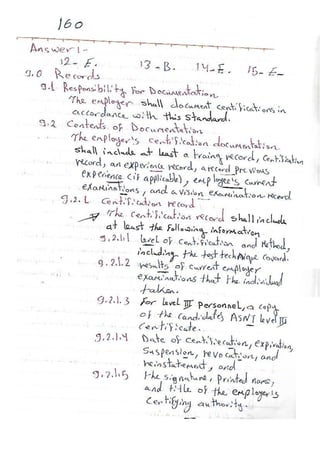 160
Answer:-
12-E. 13-B. 14-E. 15-E-
9.0 Records
9.1 Responsibility For Documentation
The employer shall document certifications in
accordance with this standard.
9.2 Contents of Documentation
The employer's certification documentation
shall include at least a training record, Certification
record, an experience record, a record previous
experience (if applicable), employee's current
examinations, and a vision examination record
9.2.1 Certification record
The certification record shall include
at least the following information
9.2.1.1 level of certification and Method,
including the test technique covered.
9.2.1.2 results of current employer
examinations that the individual
taken.
9.2.1.3 For level III personnel, a copy
of the candidates ASNT level III
certificate.
9.2.1.4 Date of certification, expiration,
Suspension, revocations, and
reinstatement, and
9.2.1.5 the signature, printed name,
and title of the employer's
certifying authority.